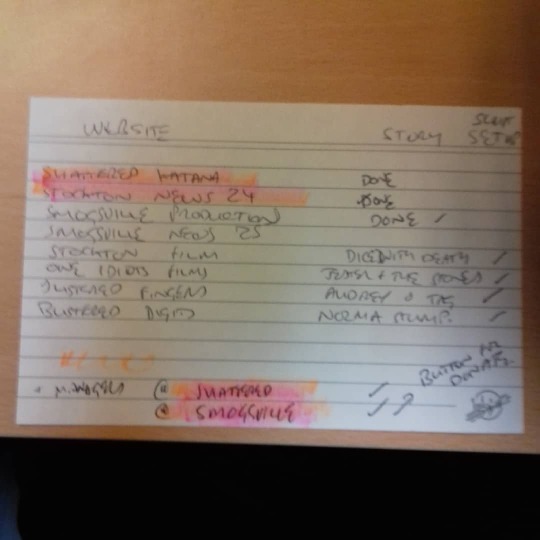 WEBSITE STORY SCRIPT SETUP
SHATTERED KATANA DONE
STOCKTON NEWS 24 DONE
SMOGSVILLE PRODUCTION DONE ✓
SMOGSVILLE NEWS 25
STOCKTON FILM DICE WITH DEATH ✓
ONE IDIOTS FILMS & THE STONES ✓
BUSTERED FINGERS AUDREY & TAG ✓
BLISTERED DIGITS NORMA STUMP. ✓
BUTTON FOR
@ SHATTERED ✓
@ SMOGSVILLE ✓